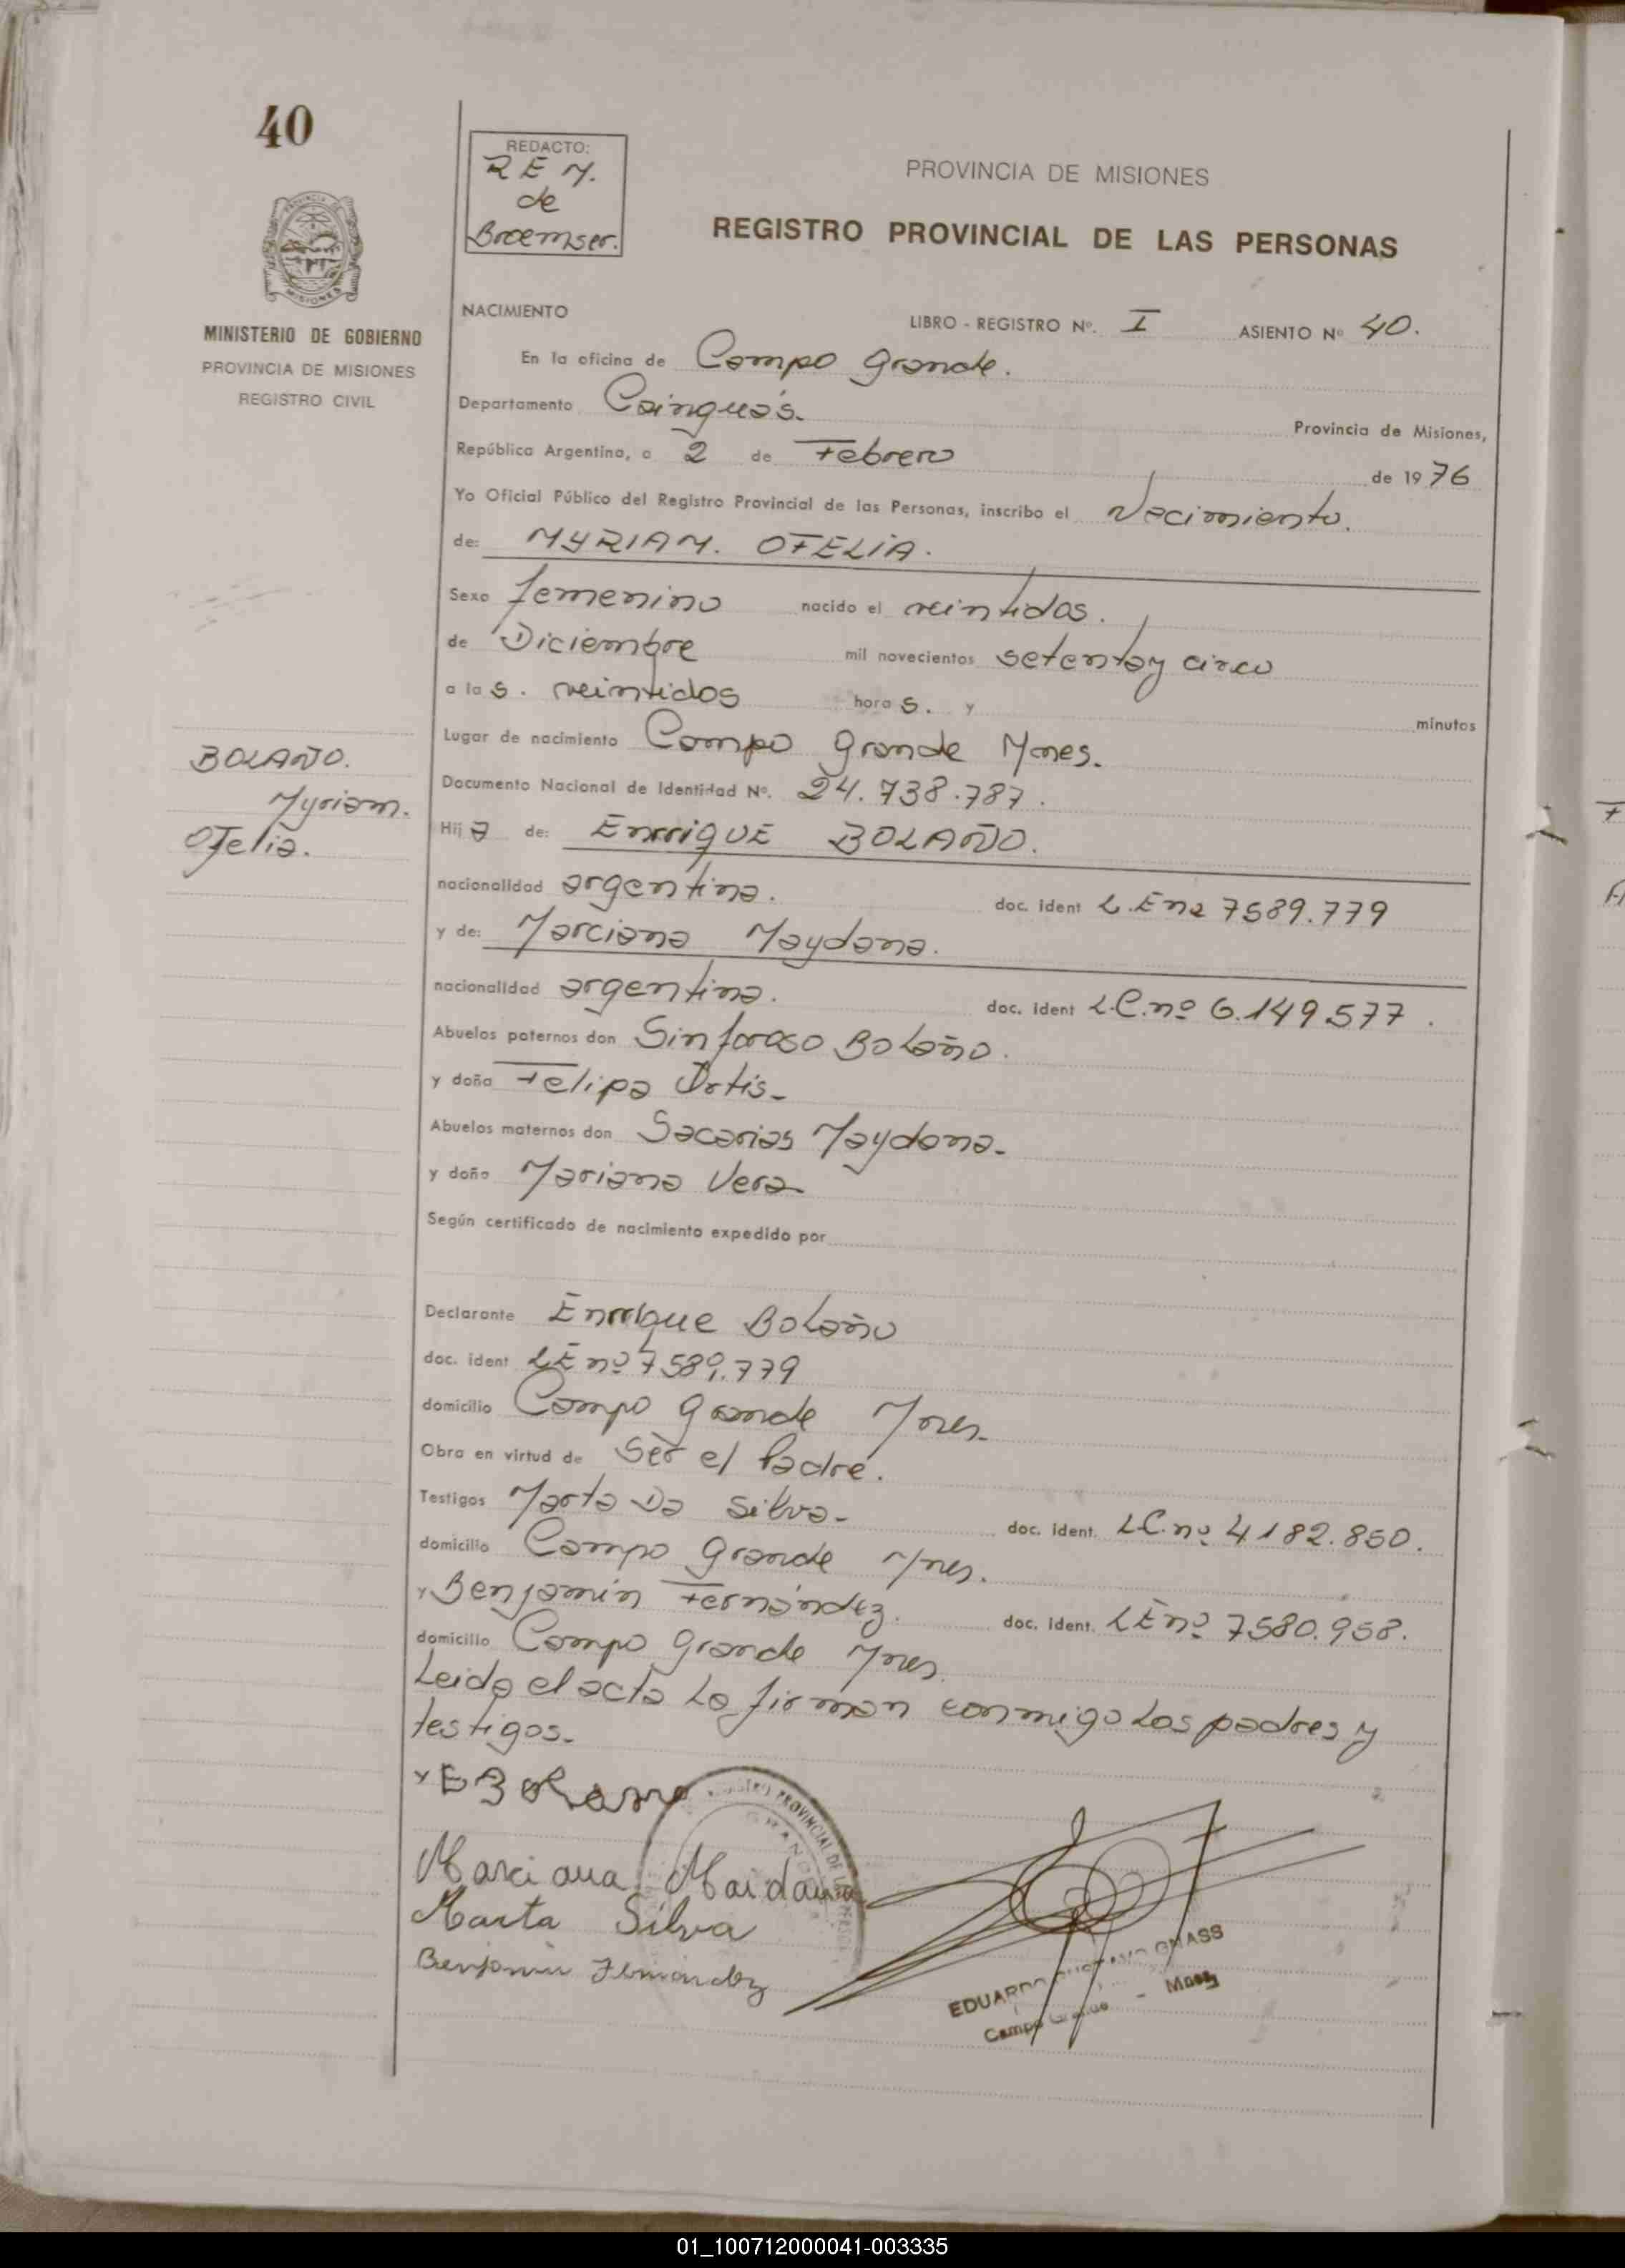 40
REDACTO:
R E M.
de
Broemser.
PROVINCIA DE MISIONES
REGISTRO PROVINCIAL DE LAS PERSONAS
MINISTERIO DE GOBIERNO
PROVINCIA DE MISIONES
REGISTRO CIVIL
NACIMIENTO
LIBRO - REGISTRO Nº. I ASIENTO Nº 40.
En la oficina de Campo Grande.
Departamento Cainguás.
Provincia de Misiones,
República Argentina, a 2 de Febrero de 1976
Yo Oficial Público del Registro Provincial de las Personas, inscribo el Nacimiento.
de: MYRIAM. OFELIA.
Sexo femenino nacido el veintidos.
de Diciembre mil novecientos setenta y cinco
a las. veintidos horas. y minutos
Lugar de nacimiento Campo Grande Mnes.
Documento Nacional de Identidad Nº. 24.738.787.
BOLAÑO.
Myriam.
Ofelia.
Hija de: EnrriqUE BOLAÑO.
nacionalidad argentina. doc. ident L.Enº 7589.779
y de: Marciana Maydana.
nacionalidad argentina. doc. ident L.C.nº 6.149577.
Abuelos paternos don Sinforoso Bolaño.
y doña Felipa Ortis-
Abuelos maternos don Sacarias Maydana-
y doña Mariana Vera-
Según certificado de nacimiento expedido por
Declarante Enrrique Bolaño
doc. ident LE nº 7589.779
domicilio Campo Grande Mnes-
Obra en virtud de Ser el Padre.
Testigos Marta Da Silva- doc. ident. LC.nº 4182.850.
domicilio Campo Grande Mnes.
y Benjamín Fernández. doc. ident. LE nº 7580.958.
domicilio Campo Grande Mnes.
Leida el acta la firman conmigo los padres y
testigos.
x E Bolano
Marciana Maidana
Marta Silva
Benjamin Fernandez
REGISTRO PROVINCIAL DE LAS PERSONAS
EDUARDO GUSTAVO GNASS
Campo Grande - Mnes
01_100712000041-003335